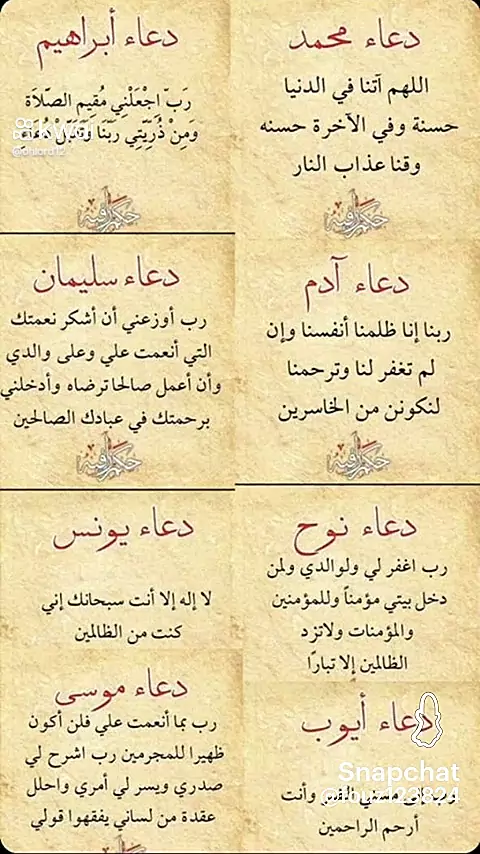 دعاء محمد
اللهم آتنا في الدنيا
حسنة وفي الآخرة حسنه
وقنا عذاب النار
دعاء أبراهيم
رَبّ اجْعَلْنِي مُقِيم الصّلاَة
وَمِنْ ذُرِيّتِي رَبّنَا وَتَقَبّلْ دُعَاءِ
kwai
@ohlord12
دعاء آدم
ربنا إنا ظلمنا أنفسنا وإن
لم تغفر لنا وترحمنا
لنكونن من الخاسرين
دعاء سليمان
رب أوزعني أن أشكر نعمتك
التي أنعمت علي وعلى والدي
وأن أعمل صالحا ترضاه وأدخلني
برحمتك في عبادك الصالحين
دعاء نوح
رب اغفر لي ولوالدي ولمن
دخل بيتي مؤمناً وللمؤمنين
والمؤمنات ولاتزد
الظالمين إلا تبارًا
دعاء يونس
لا إله إلا أنت سبحانك إني
كنت من الظالمين
دعاء أيوب
مسني الضر وأنت
أرحم الراحمين
دعاء موسى
رب بما أنعمت علي فلن أكون
ظهيرا للمجرمين رب اشرح لي
صدري ويسر لي أمري واحلل
عقدة من لساني يفقهوا قولي
Snapchat